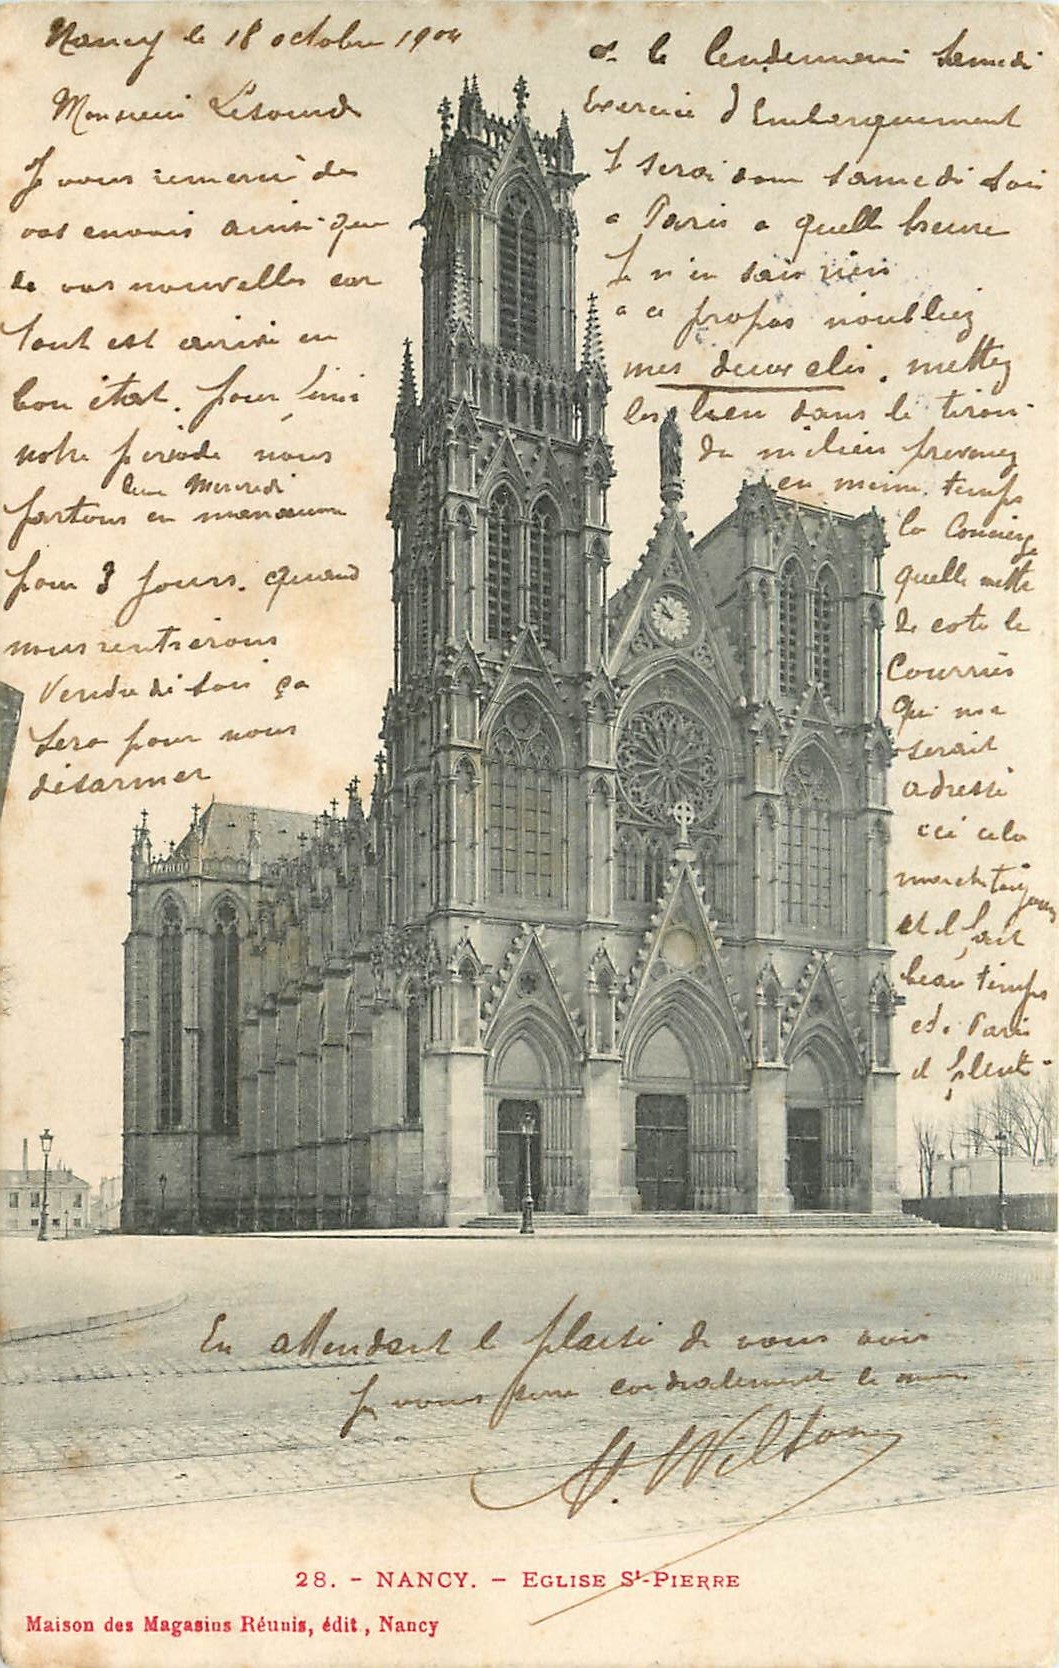 Nancy le 18 octobre 1904
Monsieur Lesourd
Je vous remercie des
vos envois ainsi que
de vos nouvelles car
tout est arrivé en
bon état. pour finir
notre période nous
partons en manœuvre
Mercredi
pour 3 jours. quand
nous rentrerons
Vendredi soir ça
sera pour nous
désarmer
et le lendemain Samedi
Exercice d'Embarquement
Je serai donc samedi soir
a Paris a quelle heure
Je n'en sais rien
a ce propos n'oubliez
mes deux clés. mettez
les bien dans le tiroir
du milieu prevenez
en meme temps
la Concierge
quelle mette
de coté le
Courrier
qui me
serait
adressé
ici cela
marche toujours
et il fait
beau temps
et a Paris
il pleut
En attendant le plaisir de vous voir
Je vous serre cordialement la main
H. Wilson
28. - NANCY. - EGLISE St-PIERRE
Maison des Magasins Réunis, édit, Nancy